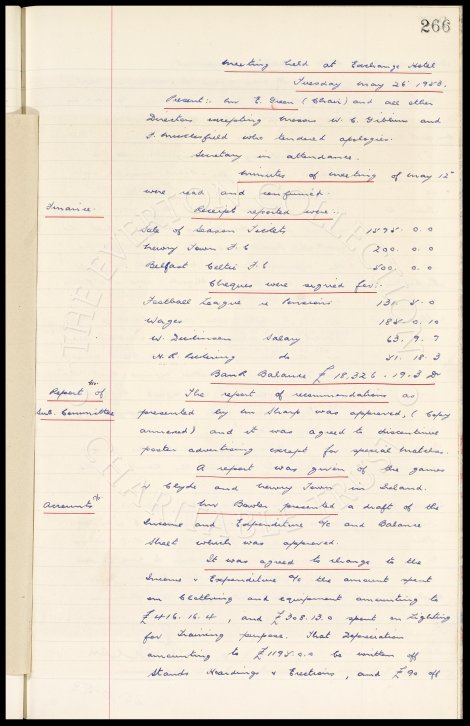 266
Meeting held at Exchange Hotel
Tuesday May 26
Present:- Mr E. Green (Chair) and all other
Directors excepting Messrs W. C. Gibbins and
who tendered apologies.
Secretary in attendance.
Minutes of meeting of May 12
were read and confirmed.
Finance. Receipts reported were:-
Sale of Season Tickets 0. 0
Newry Town F.C 200. 0. 0
Belfast Celtic F.C 500. 0. 0
Cheques were signed for:-
Football League re Pensions
Wages 0. 10
W. Dickinson Salary 63. 9. 7
H. R. Pickering do 51. 18. 3
Bank Balance £ 18,326. 19. 3 Dr
Report of The report of recommendations as
Sub. Committee presented by Mr Sharp was approved, (Copy
annexed) and it was agreed to discontinue
poster advertising except for special matches.
A report was given of the games
v Clyde and Newry Town in Ireland.
Accounts Mr Bawler presented a draft of the
Income and Expenditure a/c and Balance
Sheet which was approved.
It was agreed to charge to the
Income & Expenditure a/c the amount spent
on Clothing and equipment amounting to
£416. 16. 4, and £308. 13. 0 spent on Lighting
for Training purpose. That Depreciation
amounting to £1195. 0. 0 be written off
Stands Hoardings & Erections, and £90 off
THE EVERTON COLLECTION
CHARITABLE TRUST